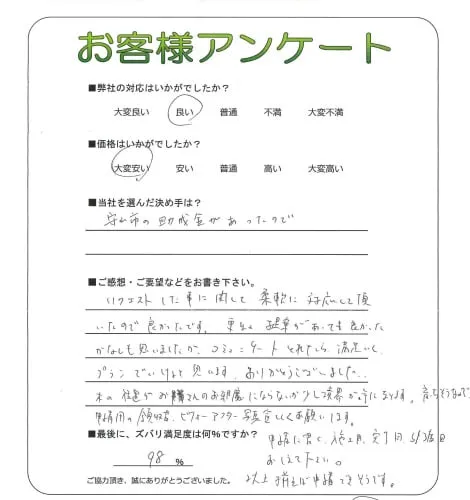 お客様アンケート
■弊社の対応はいかがでしたか？
大変良い 良い 普通 不満 大変不満
■価格はいかがでしたか？
大変安い 安い 普通 高い 大変高い
■当社を選んだ決め手は？
守山市の助成金があったので
■ご感想・ご要望などをお書き下さい。
リクエストした事に関して柔軟に対応して頂
いたので良かったです。更に 提案があっても良かった
かなとも思いましたが、コミュニケート とれたら 満足いく
プランでいけると思います。ありがとうございました。
木の お隣さんのお邪魔にならないか少し境界が気になります。
申請用の領収書、ビフォーアフター写真宜しくお願いします。
■最後に、ズバリ満足度は何%ですか？
申請に書く、施工月、完了日
98 %
おしえて下さい。
ご協力頂き、誠にありがとうございました。
以上 揃えば申請できそうです。